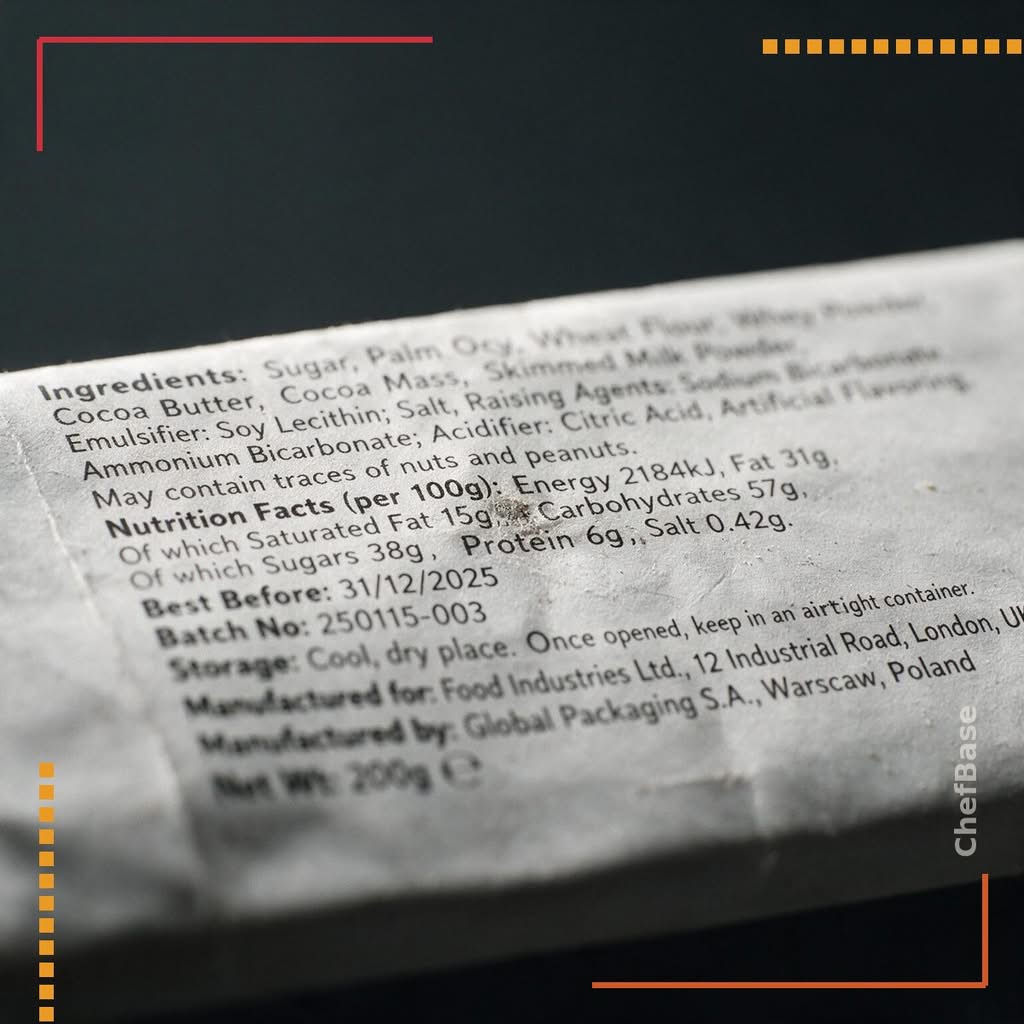 Ingredients: Sugar, Palm Ocy, Wheat Flour, Whey Powder,
Cocoa Butter, Cocoa Mass, Skimmed Milk Powder,
Emulsifier: Soy Lecithin; Salt, Raising Agents: Sodium Bicarbonate,
Ammonium Bicarbonate; Acidifier: Citric Acid, Artificial Flavoring.
May contain traces of nuts and peanuts.
Nutrition Facts (per 100g): Energy 2184kJ, Fat 31g,
Of which Saturated Fat 15g, Carbohydrates 57g,
Of which Sugars 38g, Protein 6g, Salt 0.42g.
Best Before: 31/12/2025
Batch No: 250115-003
Storage: Cool, dry place. Once opened, keep in an airtight container.
Manufactured for: Food Industries Ltd., 12 Industrial Road, London, UK
Manufactured by: Global Packaging S.A., Warscaw, Poland
Net Wt: 200g ℮
ChefBase